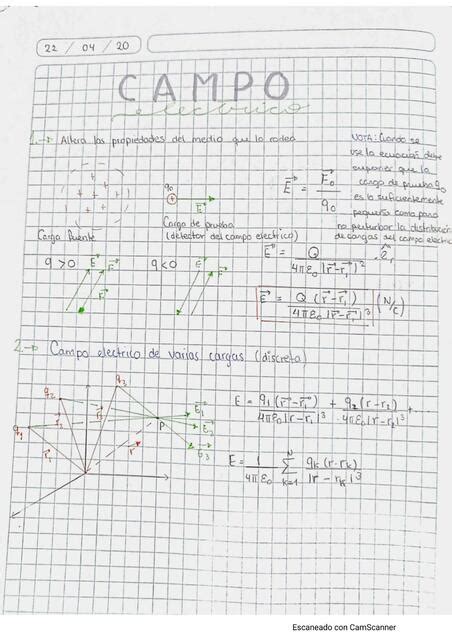 22 / 04 / 20
CAMPO
electrico
1.→ Altera las propiedades del medio que lo rodea
NOTA: Cuando se
use la ecuación debe
suponer que la
carga de prueba q₀
es lo suficientemente
pequeña como para
no perturbar la distribución
de cargas del campo electrico
+ + + + + +
q₀
+
E⃗
E⃗ = F⃗₀ / q₀
Carga fuente
Carga de prueba
(detector del campo electrico)
E⃗ = Q / 4πε₀|r⃗-r⃗₁|² . âᵣ
q > 0
E⃗ F⃗
F⃗
q < 0
E⃗ F⃗
E⃗ = Q (r⃗-r⃗₁) / 4πε₀|r⃗-r⃗₁|³ (N/C)
2.→ Campo electrico de varias cargas (discreta)
q₃
q₂
q₁
r⃗₁
r
P
E⃗₁
E⃗₂
E⃗₃
E = q₁(r⃗-r⃗₁) / 4πε₀|r-r₁|³ + q₂(r-r₂) / 4πε₀|r-r₂|³ +
E = 1 / 4πε₀ Σ N k=1 qk(r-rk) / |r-rk|³
Escaneado con CamScanner